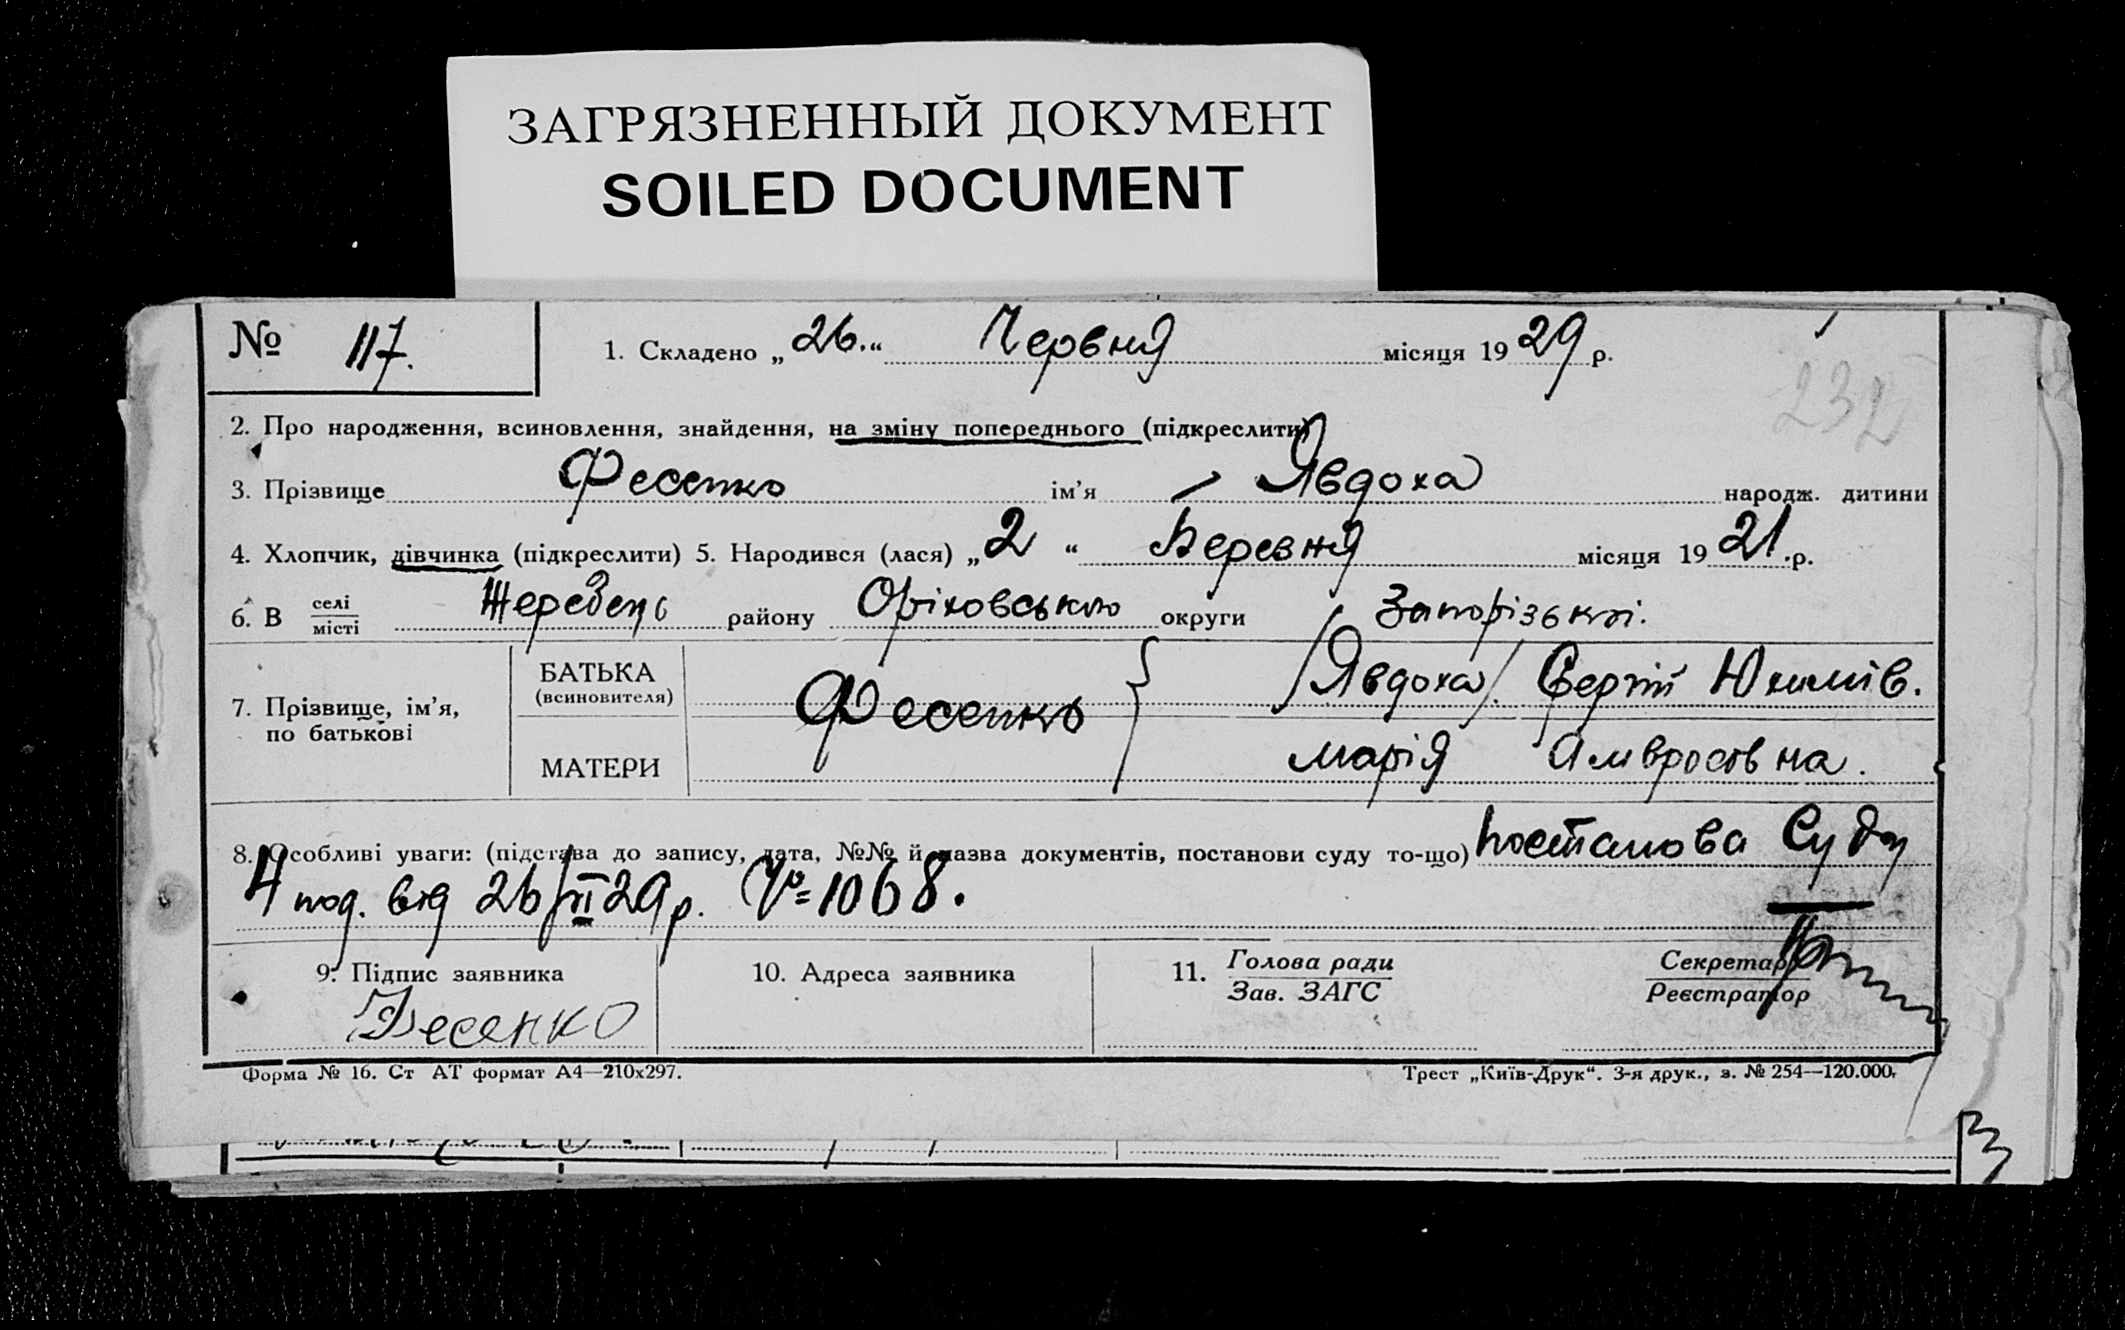 ЗАГРЯЗНЕННЫЙ ДОКУМЕНТ
SOILED DOCUMENT
№ 117. 1. Складено „26.“ Червня місяця 1929 р.
232
2. Про народження, всиновлення, знайдення, на зміну попереднього (підкреслити)
3. Прізвище Фесенко ім'я Явдоха народж. дитини
4. Хлопчик, дівчинка (підкреслити) 5. Народився (лася) „2“ Березня місяця 1921.р.
6. В селі Жеребець району Оріховського округи Запорізької.
місті
7. Прізвище, ім'я, по батькові
БАТЬКА (всиновителя) Фесенко } /Явдоха/ Сергій Юхимів.
МАТЕРИ Марія Амвросовна.
8. Особливі уваги: (підстава до запису, дата, №№ й назва документів, постанови суду то-що) Постанова Суду
4 від 26/II 29 р. № 1068.
9. Підпис заявника 10. Адреса заявника 11. Голова ради Секретар
Зав. ЗАГС Реєстратор
Фесенко
Форма № 16. Ст АТ формат А4—210х297. Трест „Київ-Друк“. 3-я друк., з. № 254—120.000.